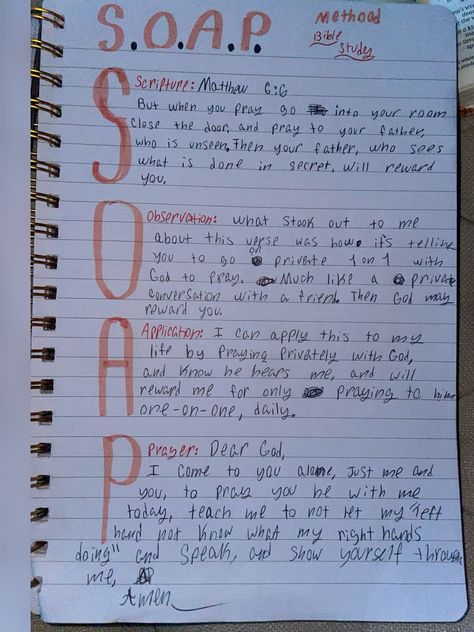 S.O.A.P. Method
Bible
Study
Scripture: Matthew 6:6
But when you pray go into your room
close the door, and pray to your father,
who is unseen. Then your father, who sees
what is done in secret, will reward
you.
Observation: what stook out to me
about this verse was how it's telling
you to go on private 1 on 1 with
God to pray. Much like a private
conversation with a friend. Then God may
reward you.
Application: I can apply this to my
life by praying privately with God,
and know he hears me, and will
reward me for only praying to him
one-on-one, daily.
Prayer: Dear God,
I come to you alone, just me and
you, to pray you be with me
today, teach me to not let my "left
hand not know what my right hands
doing" and speak, and show yourself through
me,
Amen